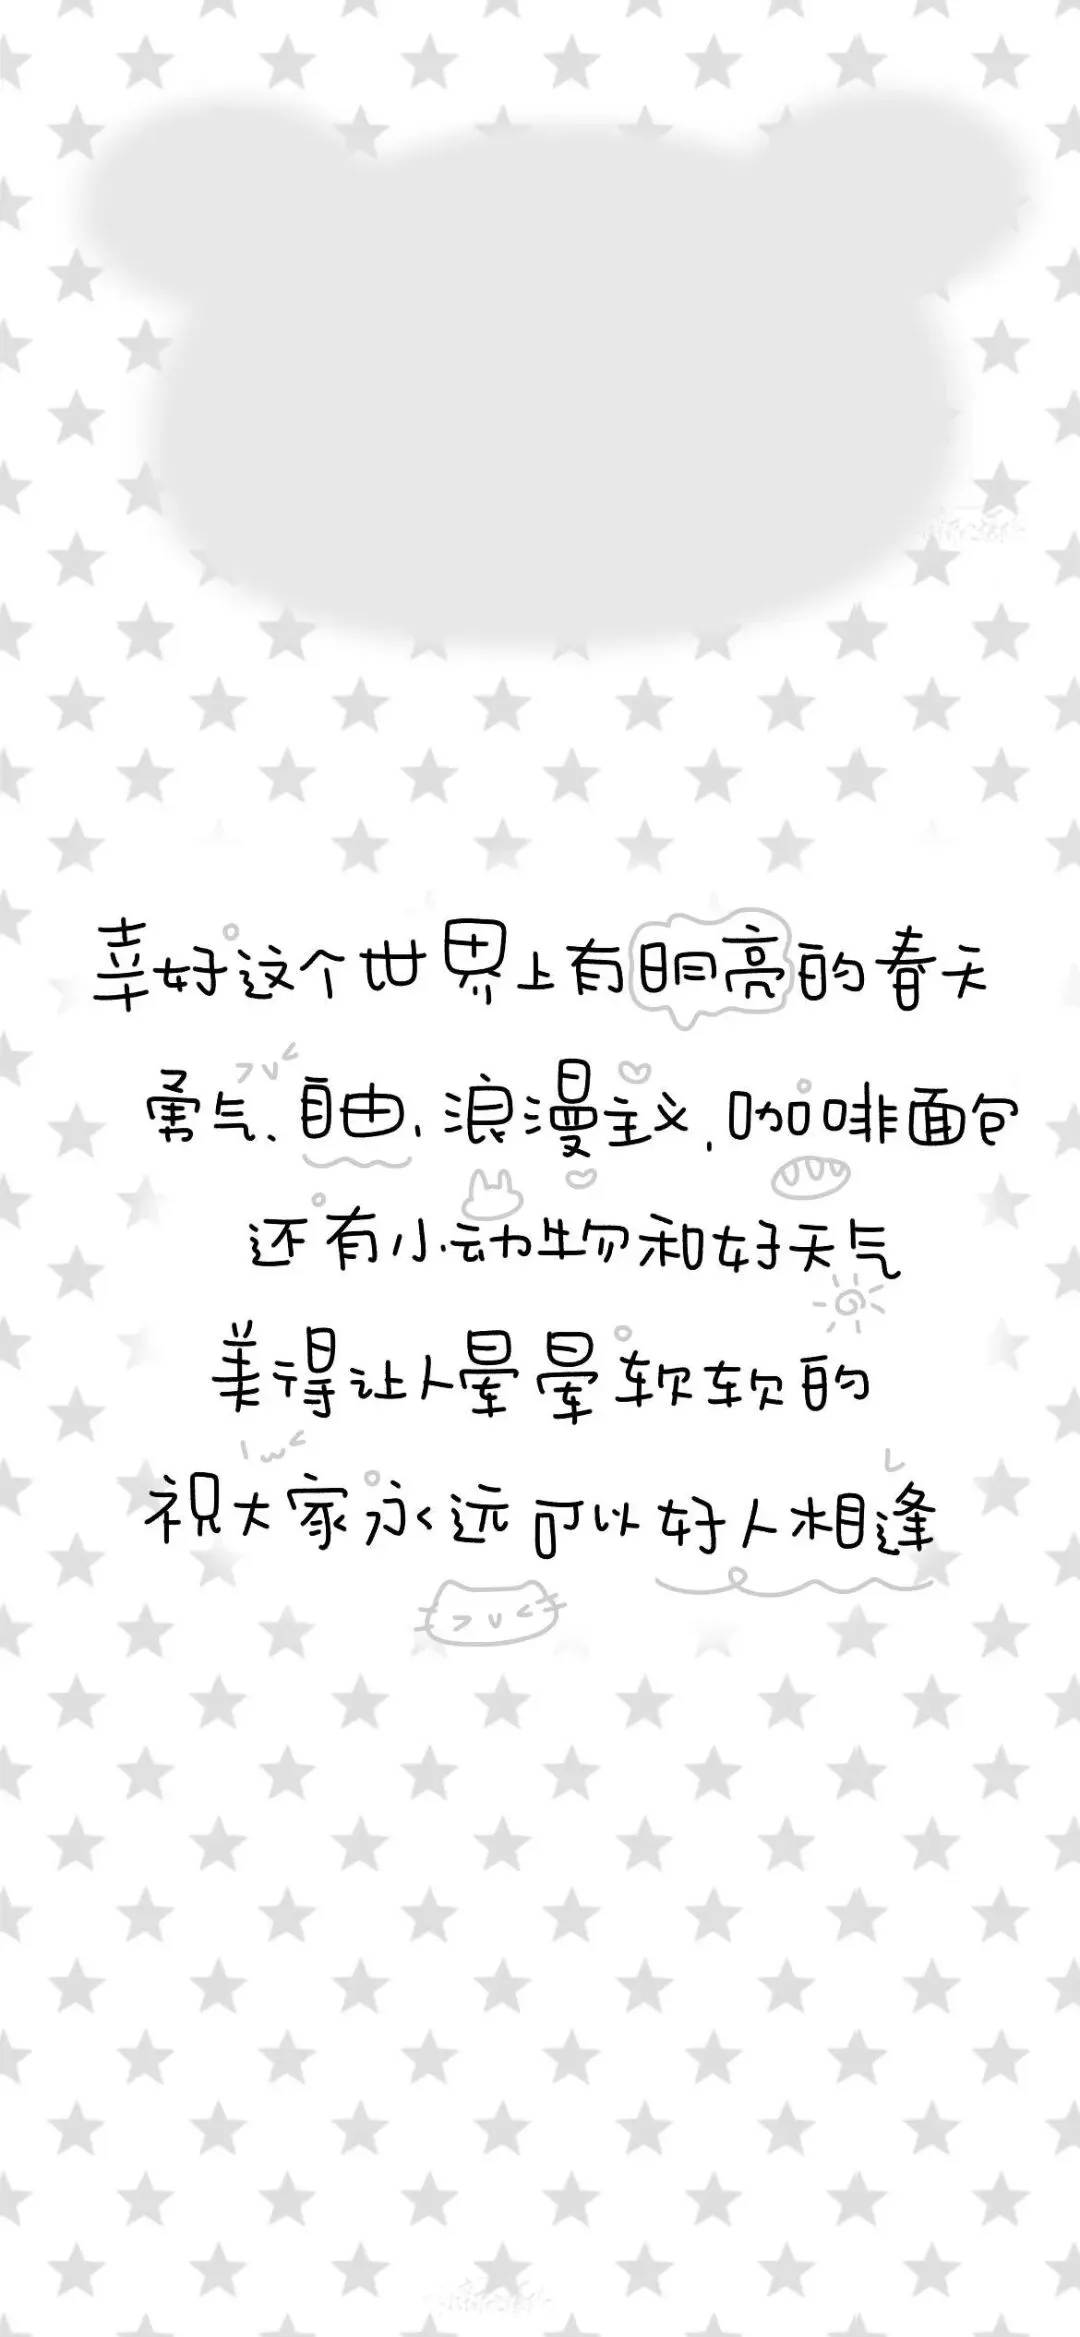 幸好这个世界上有明亮的春天
勇气、自由、浪漫主义,咖啡面包
还有小动物和好天气
美得让人晕晕软软的
祝大家永远可以好人相逢